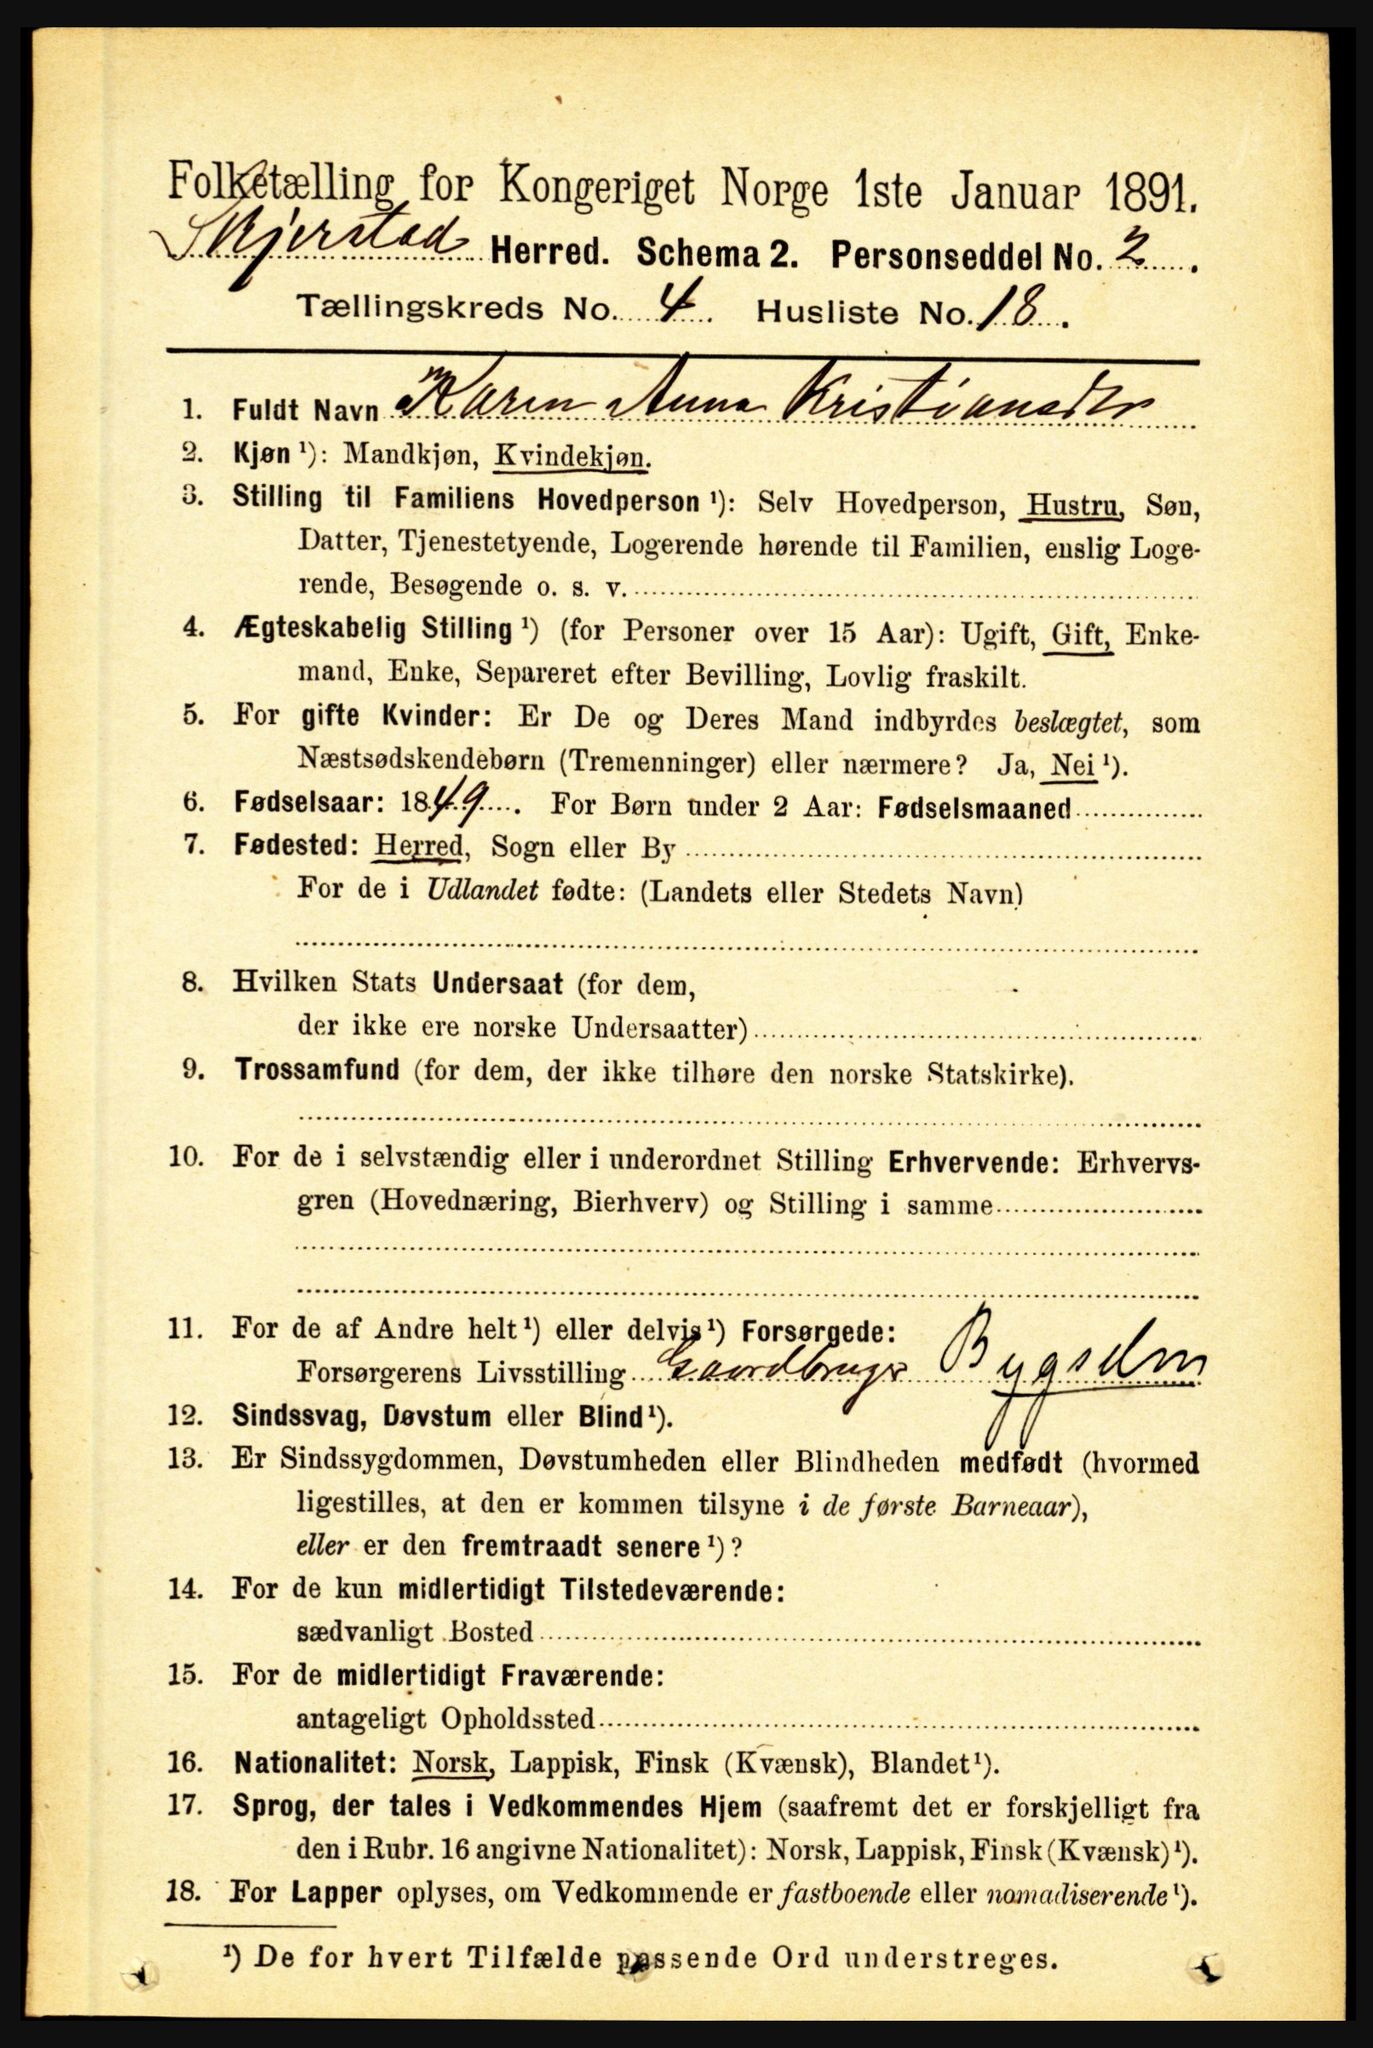 Folketælling for Kongeriget Norge 1ste Januar 1891.
Skjerstad Herred. Schema 2. Personseddel No. 2.
Tællingskreds No. 4. Husliste No. 18.
1. Fuldt Navn Karen Anna Kristiansdtr
2. Kjøn ¹): Mandkjøn, Kvindekjøn.
3. Stilling til Familiens Hovedperson ¹): Selv Hovedperson, Hustru, Søn,
Datter, Tjenestetyende, Logerende hørende til Familien, enslig Loge-
rende, Besøgende o. s. v.
4. Ægteskabelig Stilling ¹) (for Personer over 15 Aar): Ugift, Gift, Enke-
mand, Enke, Separeret efter Bevilling, Lovlig fraskilt.
5. For gifte Kvinder: Er De og Deres Mand indbyrdes beslægtet, som
Næstsødskendebørn (Tremenninger) eller nærmere? Ja, Nei ¹).
6. Fødselsaar: 1849. For Børn under 2 Aar: Fødselsmaaned
7. Fødested: Herred, Sogn eller By
For de i Udlandet fødte: (Landets eller Stedets Navn)
8. Hvilken Stats Undersaat (for dem,
der ikke ere norske Undersaatter)
9. Trossamfund (for dem, der ikke tilhøre den norske Statskirke).
10. For de i selvstændig eller i underordnet Stilling Erhvervende: Erhvervs-
gren (Hovednæring, Bierhverv) og Stilling i samme
11. For de af Andre helt ¹) eller delvis ¹) Forsørgede:
Forsørgerens Livsstilling Gaardbruger Bygselm
12. Sindssvag, Døvstum eller Blind ¹).
13. Er Sindssygdommen, Døvstumheden eller Blindheden medfødt (hvormed
ligestilles, at den er kommen tilsyne i de første Barneaar),
eller er den fremtraadt senere ¹)?
14. For de kun midlertidigt Tilstedeværende:
sædvanligt Bosted
15. For de midlertidigt Fraværende:
antageligt Opholdssted
16. Nationalitet: Norsk, Lappisk, Finsk (Kvænsk), Blandet ¹).
17. Sprog, der tales i Vedkommendes Hjem (saafremt det er forskjelligt fra
den i Rubr. 16 angivne Nationalitet): Norsk, Lappisk, Finsk (Kvænsk) ¹).
18. For Lapper oplyses, om Vedkommende er fastboende eller nomadiserende ¹).
¹) De for hvert Tilfælde passende Ord understreges.